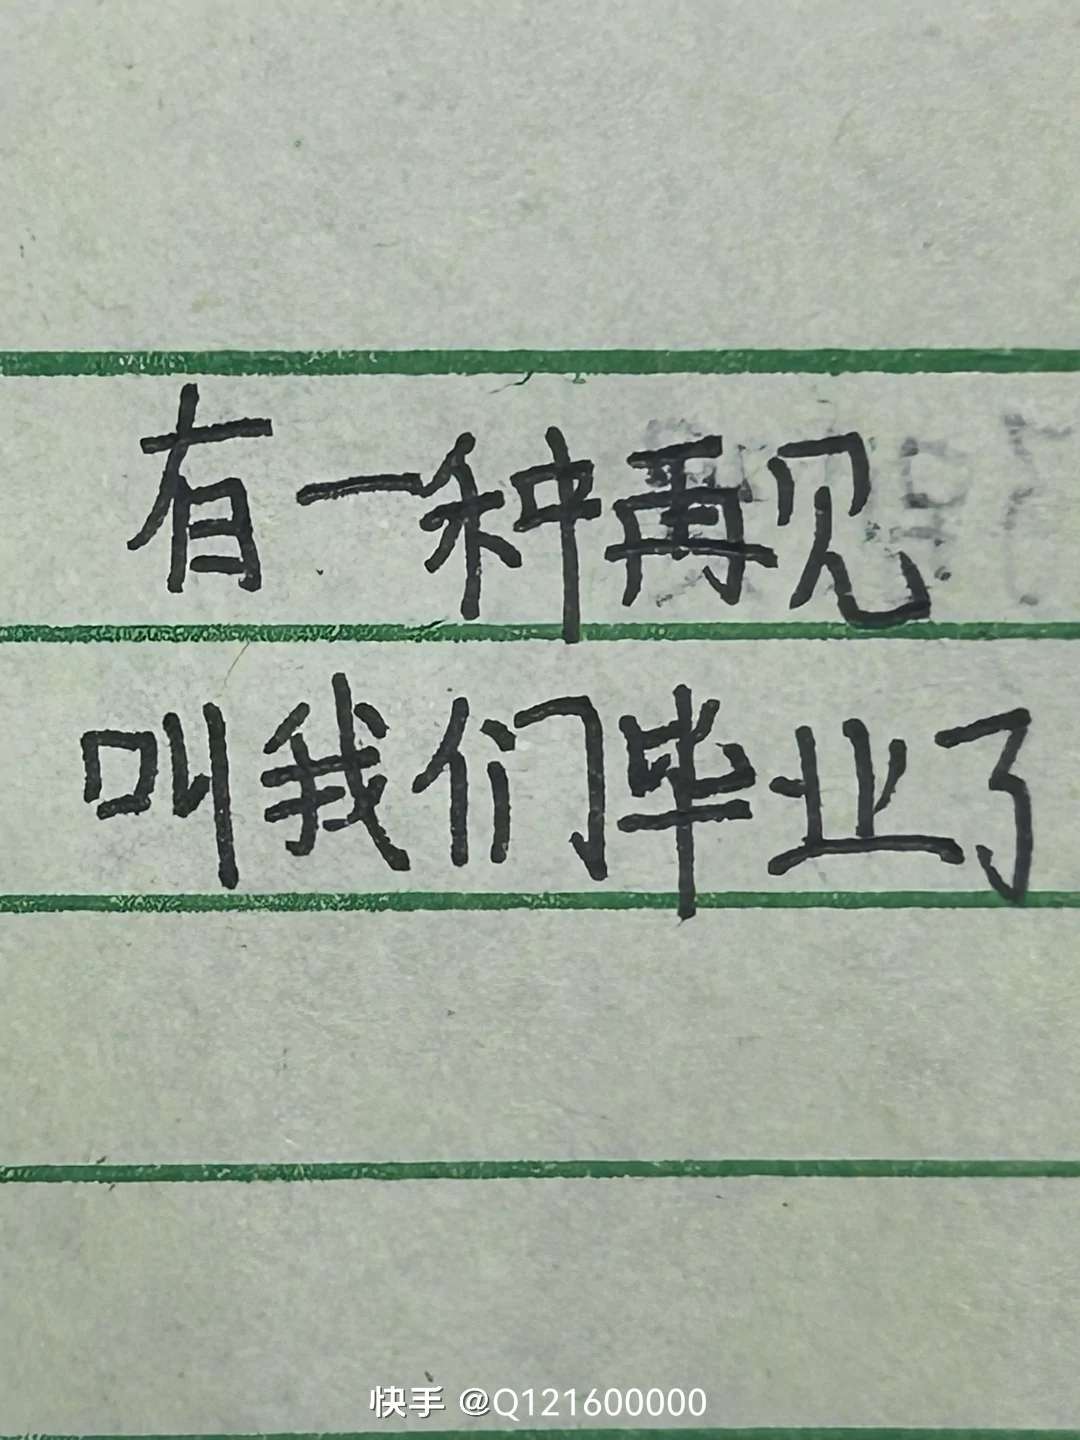 有一种再见
叫我们毕业了
快手 @Q121600000